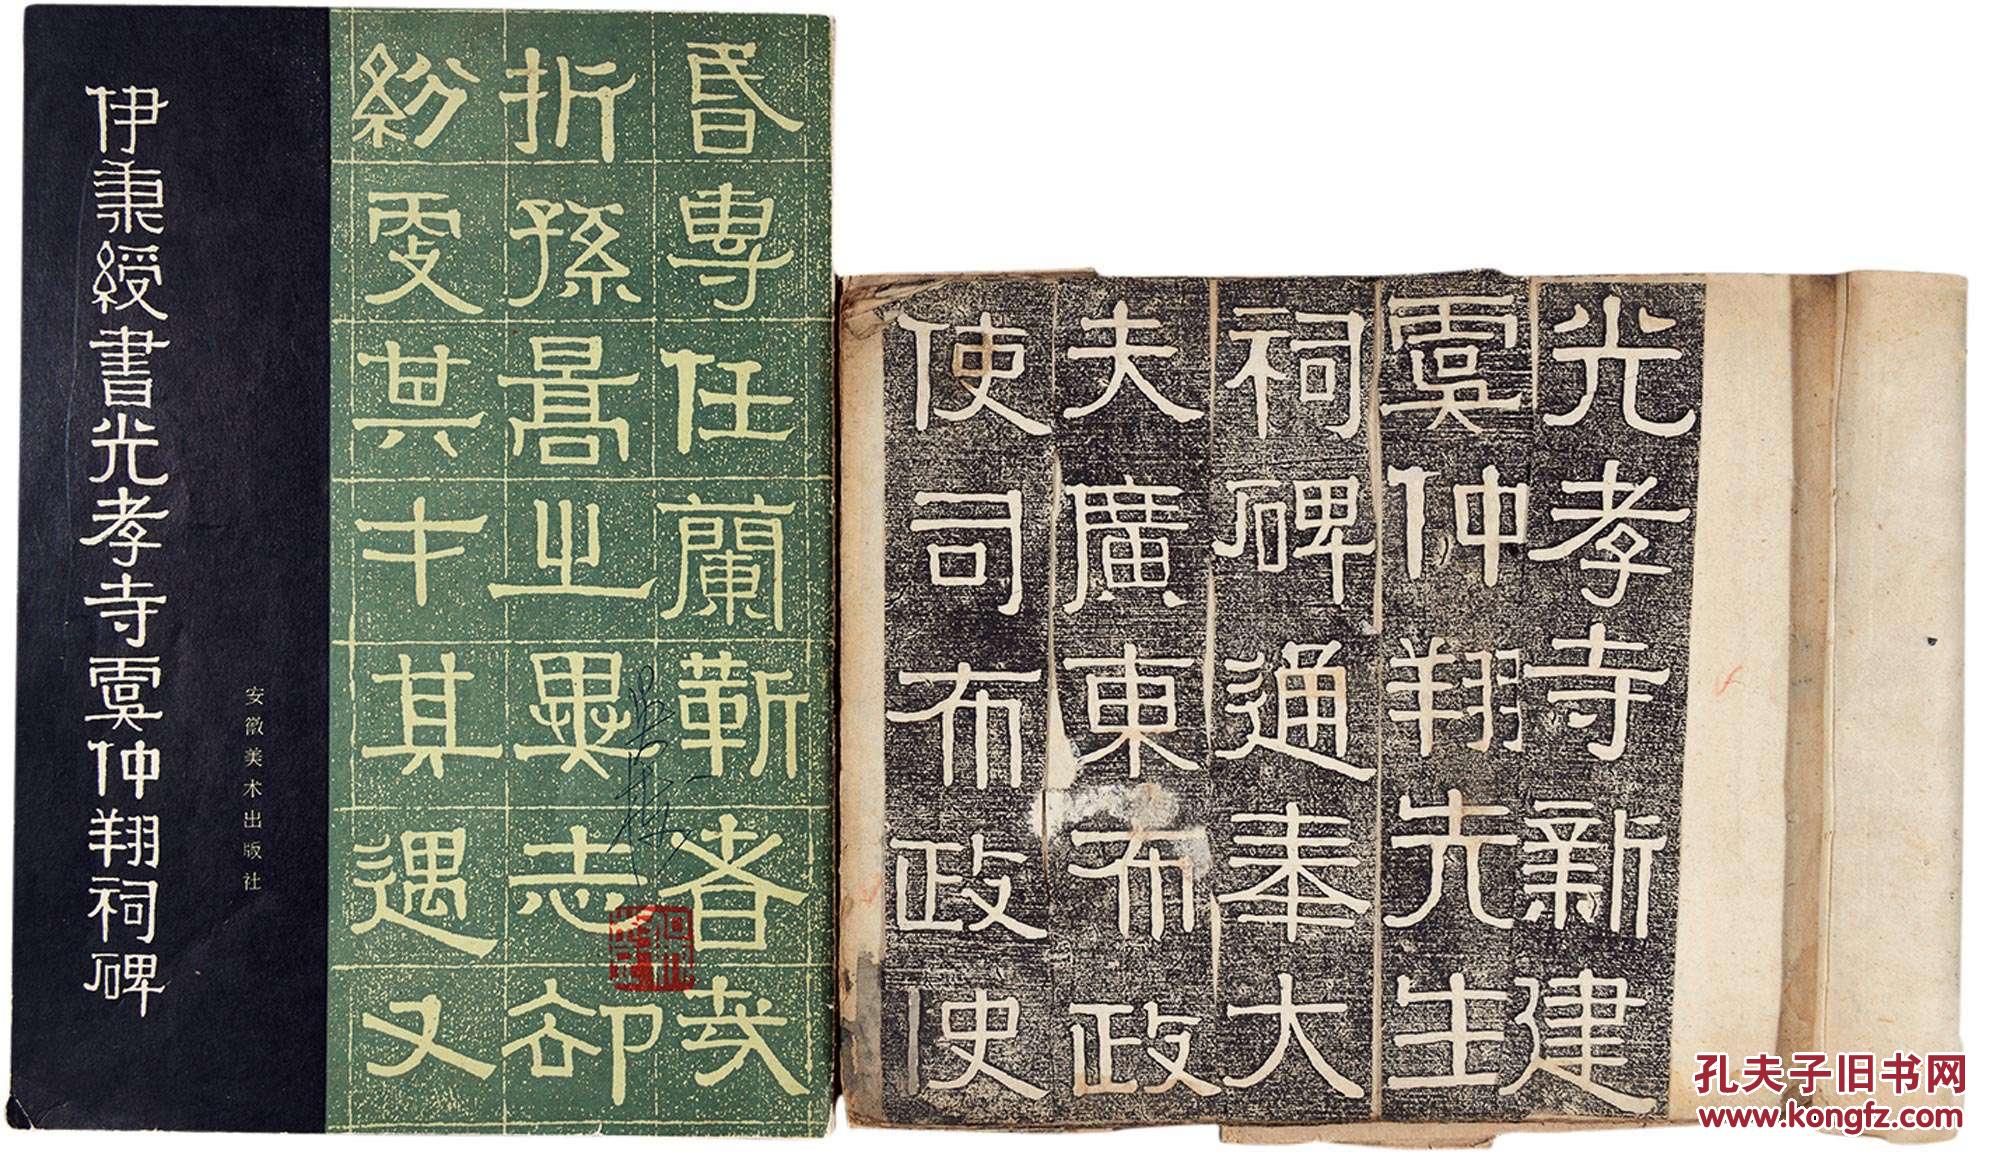 伊秉綬書光孝寺虞仲翔祠碑
安徽美术出版社
昏專任蘭蘄者哉
折孫暠之異志却
紛其才其遇又
光孝寺新建
虞仲翔先生
祠碑通奉大
夫廣東布政
使司布政使
孔夫子旧书网
www.kongfz.com